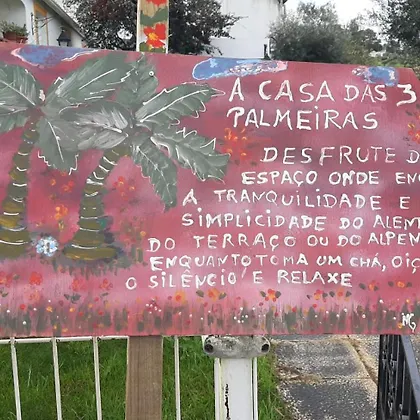 A CASA DAS 3
PALMEIRAS
DESFRUTE D
ESPAÇO ONDE EN
A TRANQUILIDADE E
SIMPLICIDADE DO ALEN
DO TERRAÇO OU DO ALPEN
ENQUANTO TOMA UM CHÁ, OIÇ
O SILÊNCIO E RELAXE